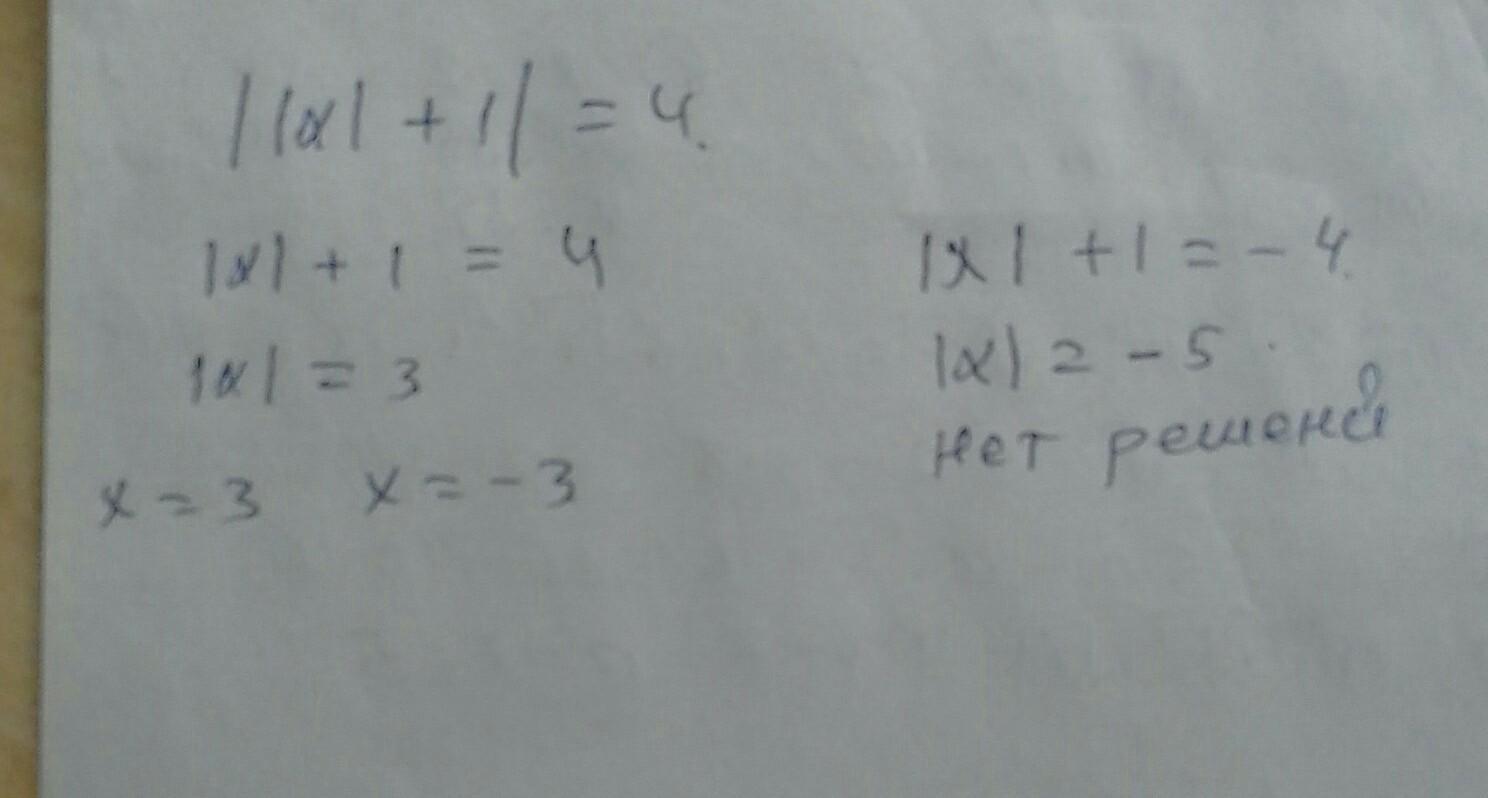 ||x| + 1| = 4.
|x| + 1 = 4
|x| = 3
x = 3 x = -3
|x| + 1 = - 4.
|x| = - 5
нет решений